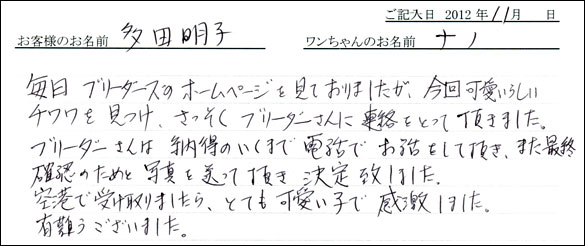 ご記入日 2012年11月 日
お客様のお名前 多田明子 ワンちゃんのお名前 ナノ
毎日 ブリーダーズのホームページを見ておりましたが、今回可愛いらしい
チワワを見つけ、さっそくブリーダーさんに連絡をとって頂きました。
ブリーダーさんは納得のいくまで電話でお話をして頂き、また最終
確認のためと写真を送って頂き決定致しました。
空港で受け取りましたら、とても可愛い子で感激しました。
有難うございました。